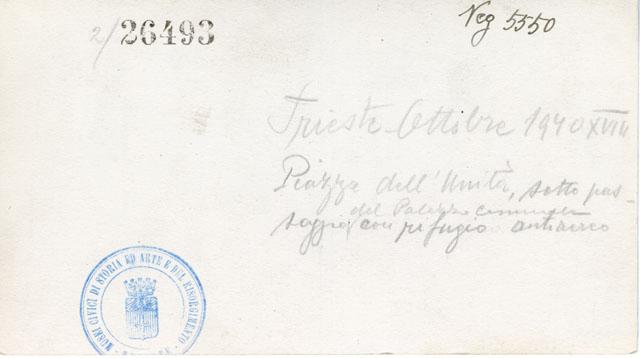 2/26493
Neg 5550
Trieste Ottobre 1940 XVIII
Piazza dell'Unità, sotto pas-
del Palazzo comunale
saggio con rifugio antiaereo
MUSEI CIVICI DI STORIA ED ARTE E DEL RISORGIMENTO